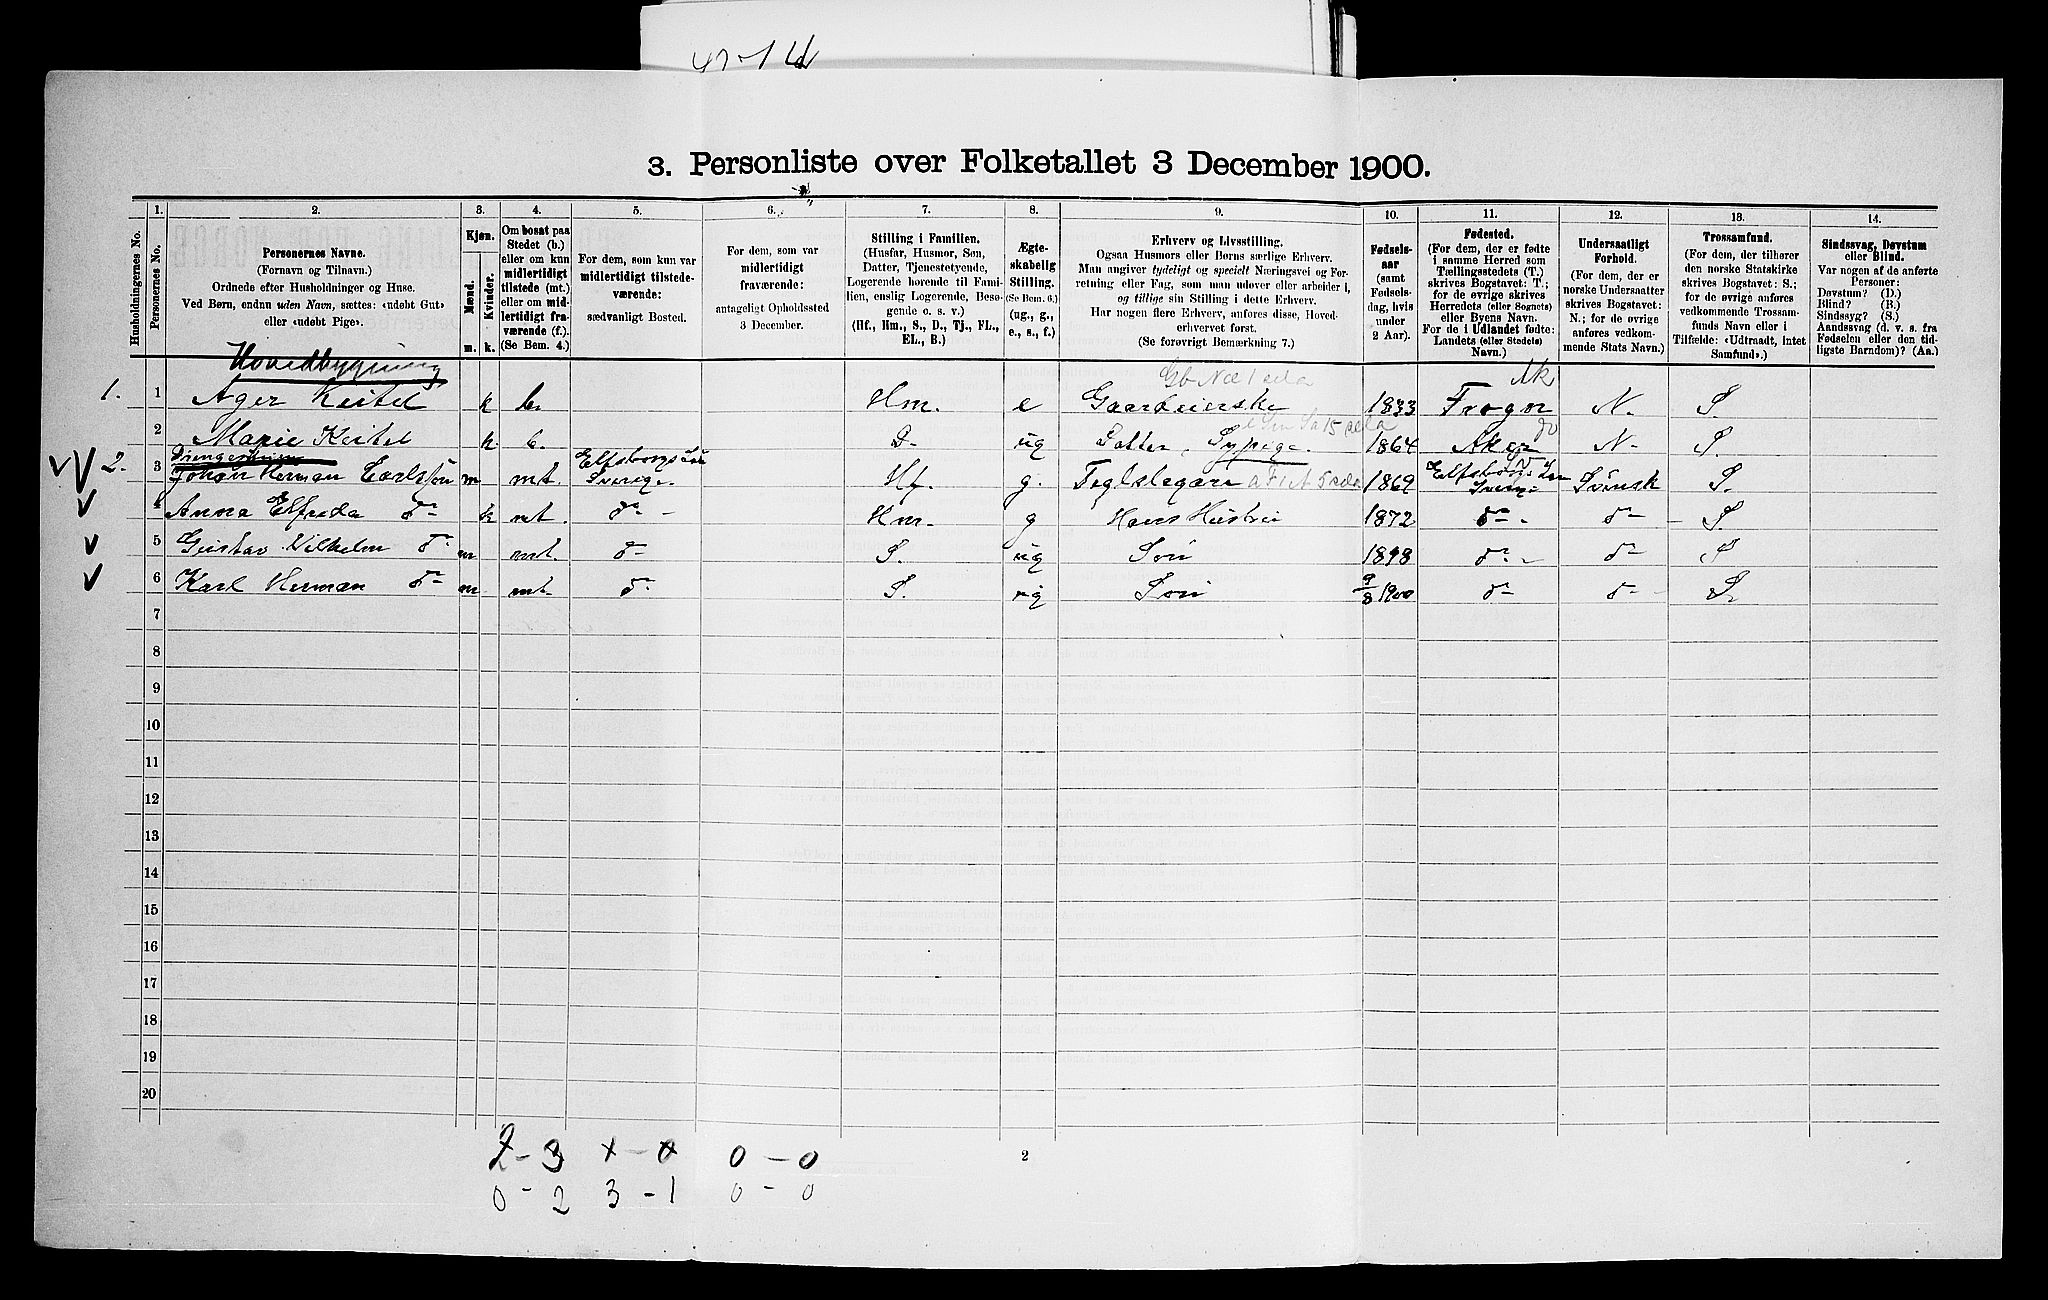 3. Personliste over Folketallet 3 December 1900.
1. 2. 3. 4. 5. 6. 7. 8. 9. 10. 11. 12. 13. 14.
Husholdningernes No.
Personernes No.
Personernes Navne.
(Fornavn og Tilnavn.)
Ordnede efter Husholdninger og Huse.
Ved Børn, endnu uden Navn, sættes: «udøbt Gut»
eller «udøbt Pige».
Kjøn.
Mænd.
Kvinder.
m. k.
Om bosat paa
Stedet (b.)
eller om kun
midlertidigt
tilstede (mt.)
eller om mid-
lertidigt fra-
værende (f.).
(Se Bem. 4.)
For dem, som kun var
midlertidigt tilstede-
værende:
sædvanligt Bosted.
For dem, som var
midlertidigt
fraværende:
antageligt Opholdssted
3 December.
Stilling i Familien.
(Husfar, Husmor, Søn,
Datter, Tjenestetyende,
Logerende hørende til Fami-
lien, enslig Logerende, Besø-
gende o. s. v.)
(Hf., Hm., S., D., Tj., FL.,
EL., B.)
Ægte-
skabelig
Stilling.
(Se Bem. 6.)
(ug., g.,
e., s., f.)
Erhverv og Livsstilling.
Ogsaa Husmors eller Børns særlige Erhverv.
Man angiver tydeligt og specielt Næringsvei og For-
retning eller Fag, som man udover eller arbeider i,
og tillige sin Stilling i dette Erhverv.
Har nogen flere Erhverv, anføres disse, Hoved-
erhvervet først.
(Se forøvrigt Bemærkning 7.)
Fødsels-
aar
(samt
Fødsels-
dag, hvis
under
2 Aar).
Fødested.
(For dem, der er fødte
i samme Herred som
Tællingsstedets (T.)
skrives Bogstavet: T.;
for de øvrige skrives
Herredets (eller Sognets)
eller Byens Navn.
For de i Udlandet fødte:
Landets (eller Stedets)
Navn.)
Undersaatligt
Forhold.
(For dem, der er
norske Undersaatter
skrives Bogstavet:
N.; for de øvrige
anføres vedkom-
mende Stats Navn.)
Trossamfund.
(For dem, der tilhører
den norske Statskirke
skrives Bogstavet: S.;
for de øvrige anføres
vedkommende Trossam-
funds Navn eller i
Tilfælde: «Udtraadt, intet
Samfund».)
Sindssvag, Døvstum
eller Blind.
Var nogen af de anførte
Personer:
Døvstum? (D.)
Blind? (B.)
Sindssyg? (S.)
Aandssvag (d. v. s. fra
Fødselen eller den tid-
ligste Barndom)? (Aa.)
Hovedbygning
1. 1 Ager Keitel k b. Hm. e Gaardeierske 1833 Frogn N. S.
2 Marie Keitel k. b. D. ug Datter, Sypige. 1864 Aker N. S.
2. 3 Johan Herman Carlsson m mt. Elfsborgs Län Sverige. Hf. g. Teglslagere 1869 Elfsborgs Len Sverige Svensk S.
4 Anna Elfrida do k mt. do Hm. g Hans Hustru 1872 do do S.
5 Gustav Vilhelm do m mt. do S. ug Søn 1898 do do S
6 Karl Herman do m mt. do S. ug Søn 9/8 1900 do do S.
7
8
9
10
11
12
13
14
15
16
17
18
19
20
2-3 x-x 0-0
0-2 3-1 0-0
2